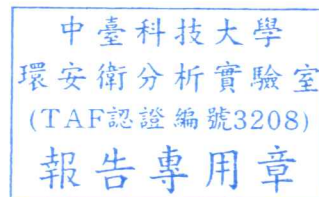 中臺科技大學
環安衛分析實驗室
(TAF認證編號3208)
報告專用章